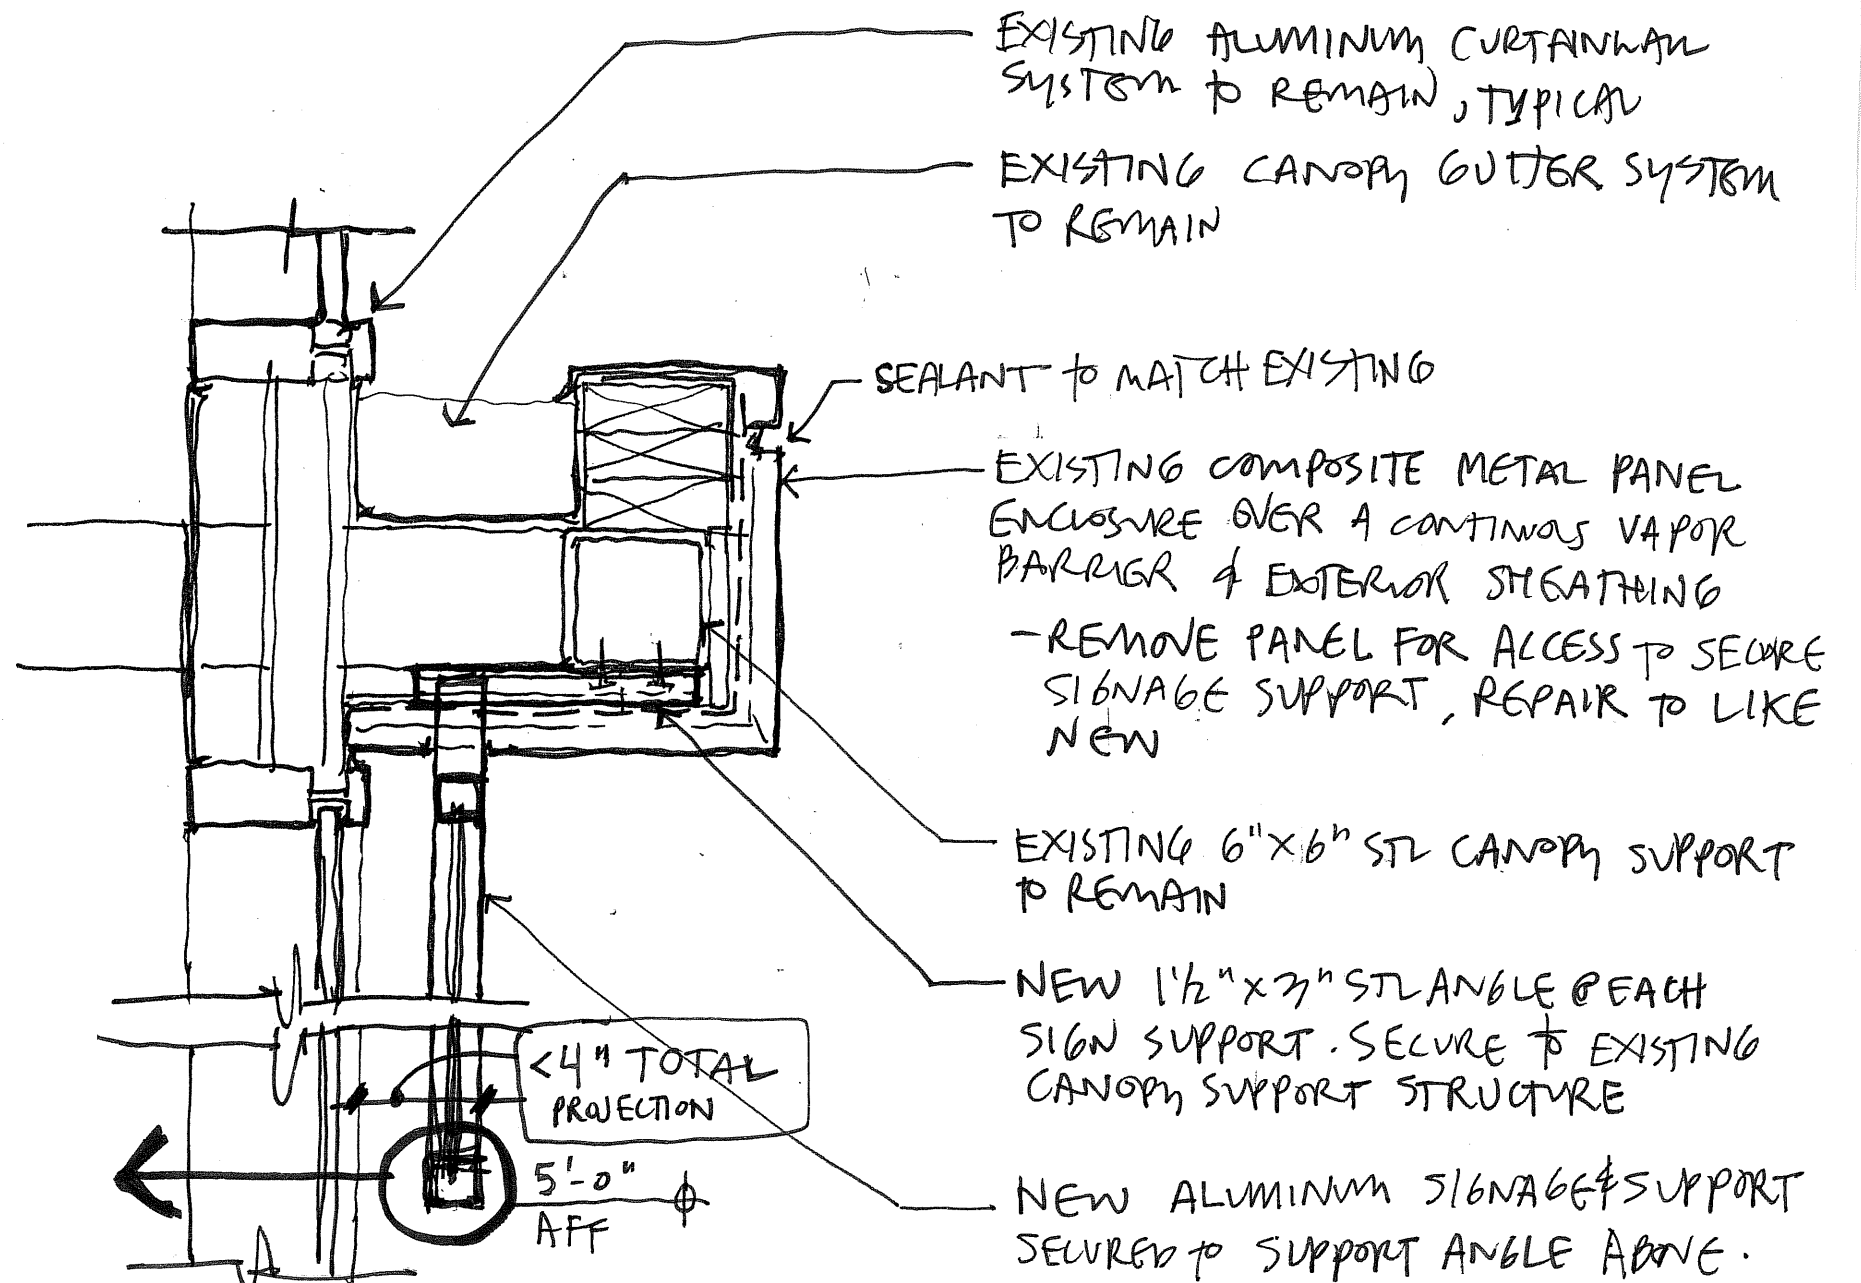 EXISTING ALUMINUM CURTAINWALL
SYSTEM TO REMAIN, TYPICAL
EXISTING CANOPY GUTTER SYSTEM
TO REMAIN
SEALANT TO MATCH EXISTING
EXISTING COMPOSITE METAL PANEL
ENCLOSURE OVER A CONTINUOS VAPOR
BARRIER & EXTERIOR SHEATHING
- REMOVE PANEL FOR ACCESS TO SECURE
SIGNAGE SUPPORT, REPAIR TO LIKE
NEW
EXISTING 6" X 6" STL CANOPY SUPPORT
TO REMAIN
NEW 1 1/2" X 3" STL ANGLE @ EACH
SIGN SUPPORT. SECURE TO EXISTING
CANOPY SUPPORT STRUCTURE
<4" TOTAL
PROJECTION
5'-0"
AFF
NEW ALUMINUM SIGNAGE & SUPPORT
SECURED TO SUPPORT ANGLE ABOVE.